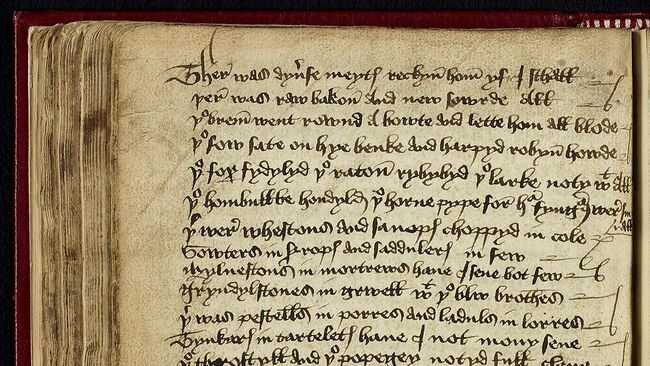 Ther was dyv̄se meyts reckyn̄ hom yf I schall
þer was raw bakon̄ and new sowrde all
yͤ brem̄ went rownd a bowte and lette hom all blode
yͤ sow sate on hye benke and harpyd robyn̄ howde
yͤ fox fydylyd yͤ raton̄ rybybyd yͤ larke notyd wͭ all
yͤ hombulbe hondyld yͤ horne pype for hͬ fyngͬs werͤ small
yͬ werͤ whestons and sanops choppyd in cole
Sowters in sirops and saddulers in sew
mylnestons in mortrews haue I sene bot few
Gryndylstones in grwell wͭ yͤ blw brothes
yͬ was pestells in porres and laduls in lorres
Tynkars in tartelets haue I not mony sene
yͤ throstyll and yͤ popegey notyd full